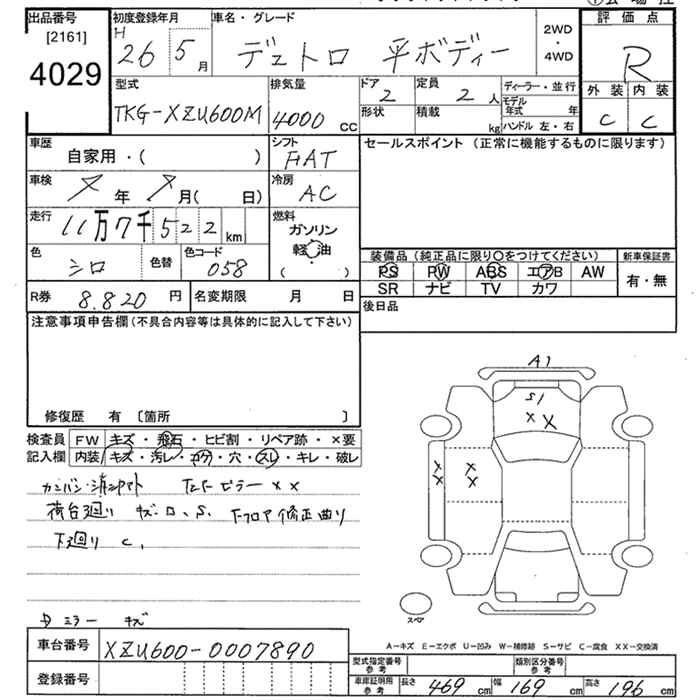 出品番号
[2161]
4029
初度登録年月
H
26 5月
車名・グレード
デュトロ 平ボディー
2WD
・
4WD
評価点
R
外装 内装
C C
型式
TKG-XZU600M
排気量
4000 CC
ドア
2
形状
定員
2人
積載
kg
ディーラー・並行
モデル年式 年
ハンドル 左・右
車歴
自家用・( )
シフト
FIAT
セールスポイント (正常に機能するものに限ります)
車検
年 月( 日)
冷房
AC
走行
11万7千522km
燃料
ガソリン
軽油
( )
色
シロ
色替
色コード
058
装備品 (純正品に限り〇をつけてください)
PS PW ABS エアB AW
SR ナビ TV カワ
新車保証書
有・無
R券
8.820円
名変期限 月 日
後日品
注意事項申告欄(不具合内容等は具体的に記入して下さい)
修復歴 有 〔箇所 〕
検査員記入欄
FW キズ・飛石・ヒビ割・リペア跡・×要
内装 キズ・汚レ・コゲ・穴・スレ・キレ・破レ
カンバン・消シアト ピラー XX
荷台廻り キズ・ロ、S. フロア修正曲り
下廻り C,
ミラー キズ
A1
S1
X X
X X
X X
スペア
A-キズ E-エクボ U-凹み W-補修跡 S-サビ C-腐食 XX-交換済
車台番号
XZU600-0007890
登録番号
型式指定番号
参考
類別区分番号
参考
車庫証明用
参考
長さ 469cm 幅 169cm 高さ 196cm